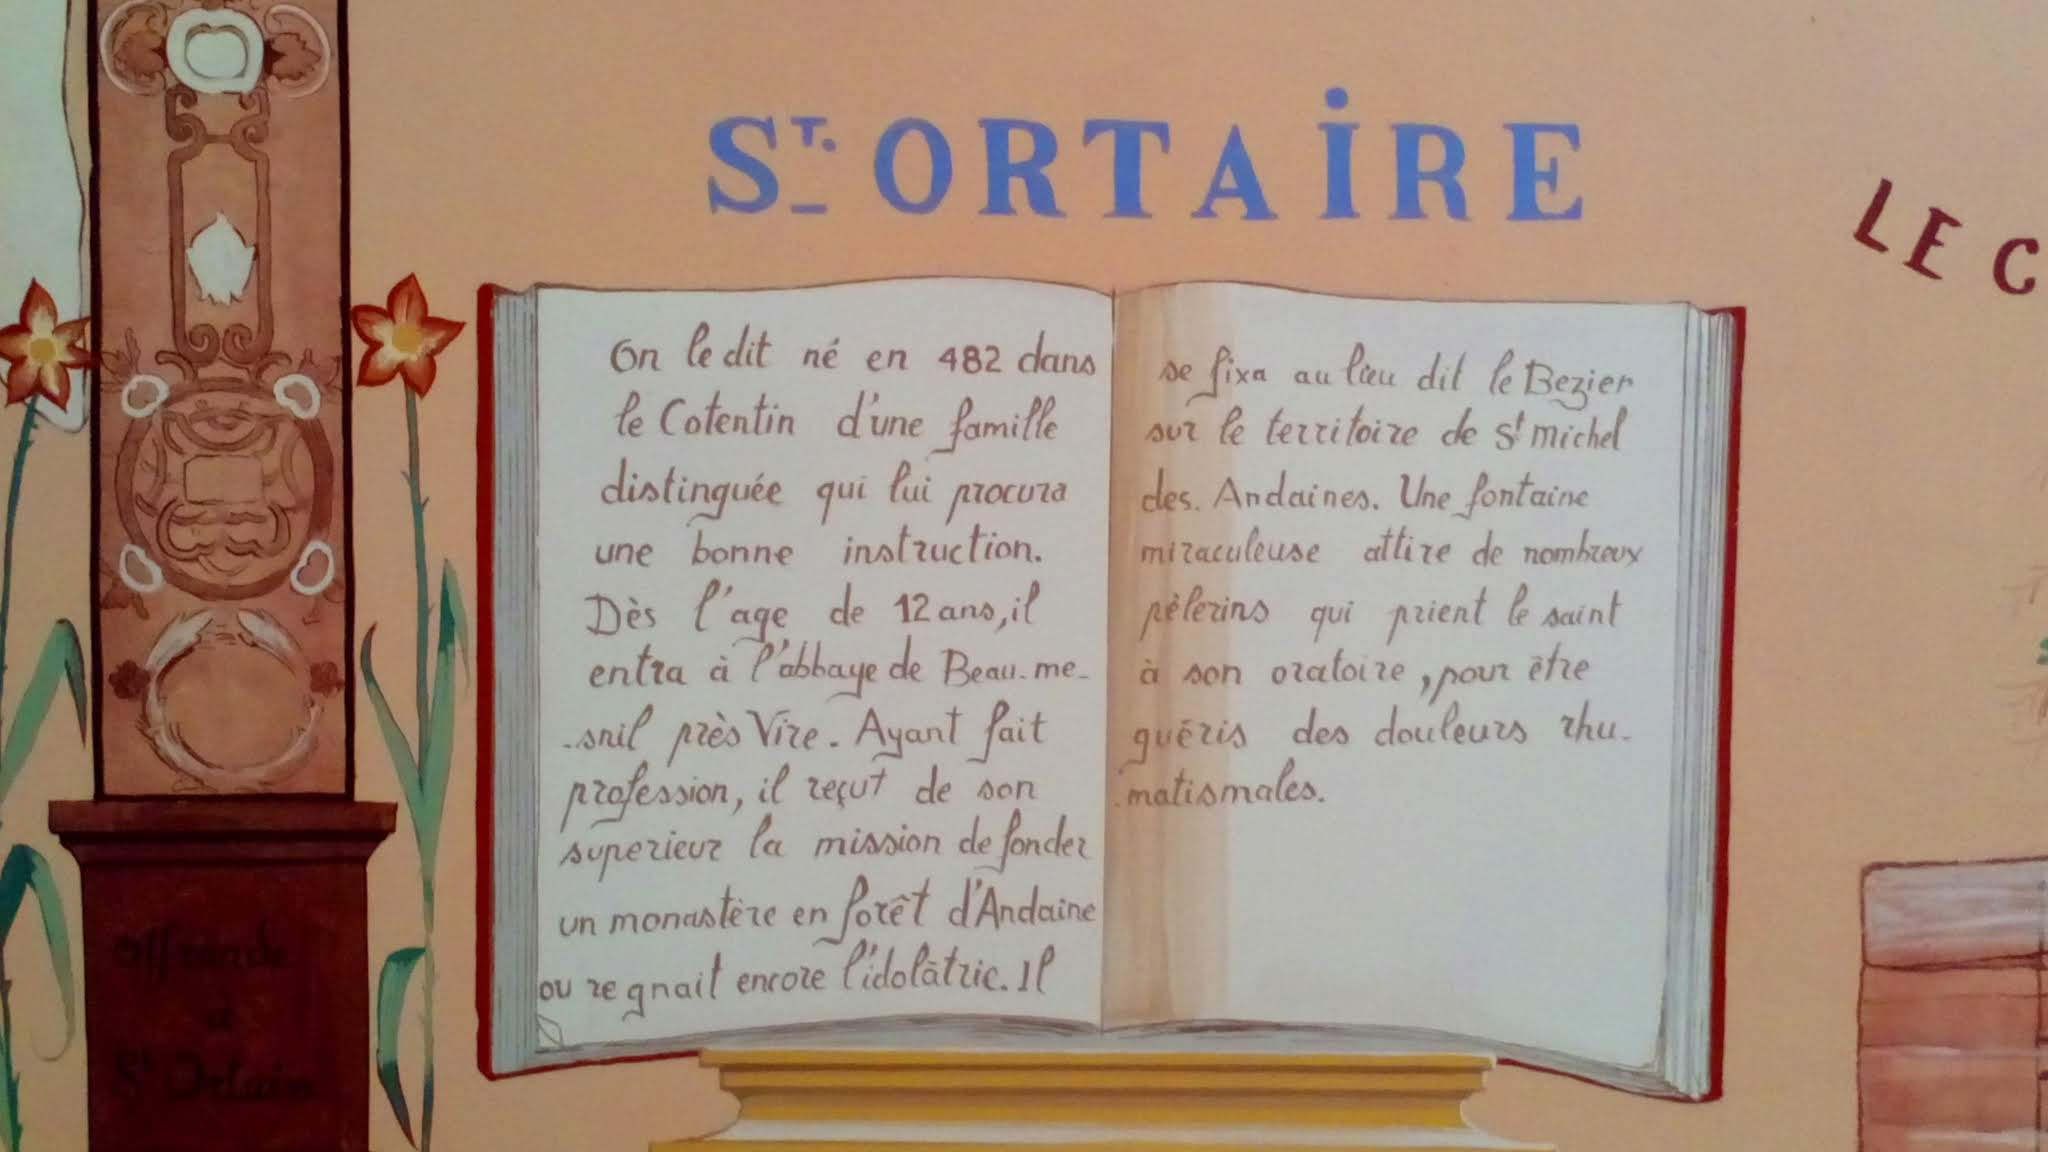 St. ORTAIRE
LE C
On le dit né en 482 dans
le Cotentin d'une famille
distinguée qui lui procura
une bonne instruction.
Dès l'age de 12 ans, il
entra à l'abbaye de Beau-me-
-snil près Vire. Ayant fait
profession, il reçut de son
superieur la mission de fonder
un monastère en forêt d'Andaine
ou regnait encore l'idolâtrie. Il
se fixa au lieu dit le Bezier
sur le territoire de St michel
des. Andaines. Une fontaine
miraculeuse attire de nombreux
pèlerins qui prient le saint
à son oratoire, pour être
guéris des douleurs rhu-
-matismales.
offrande
à
St Ortaire